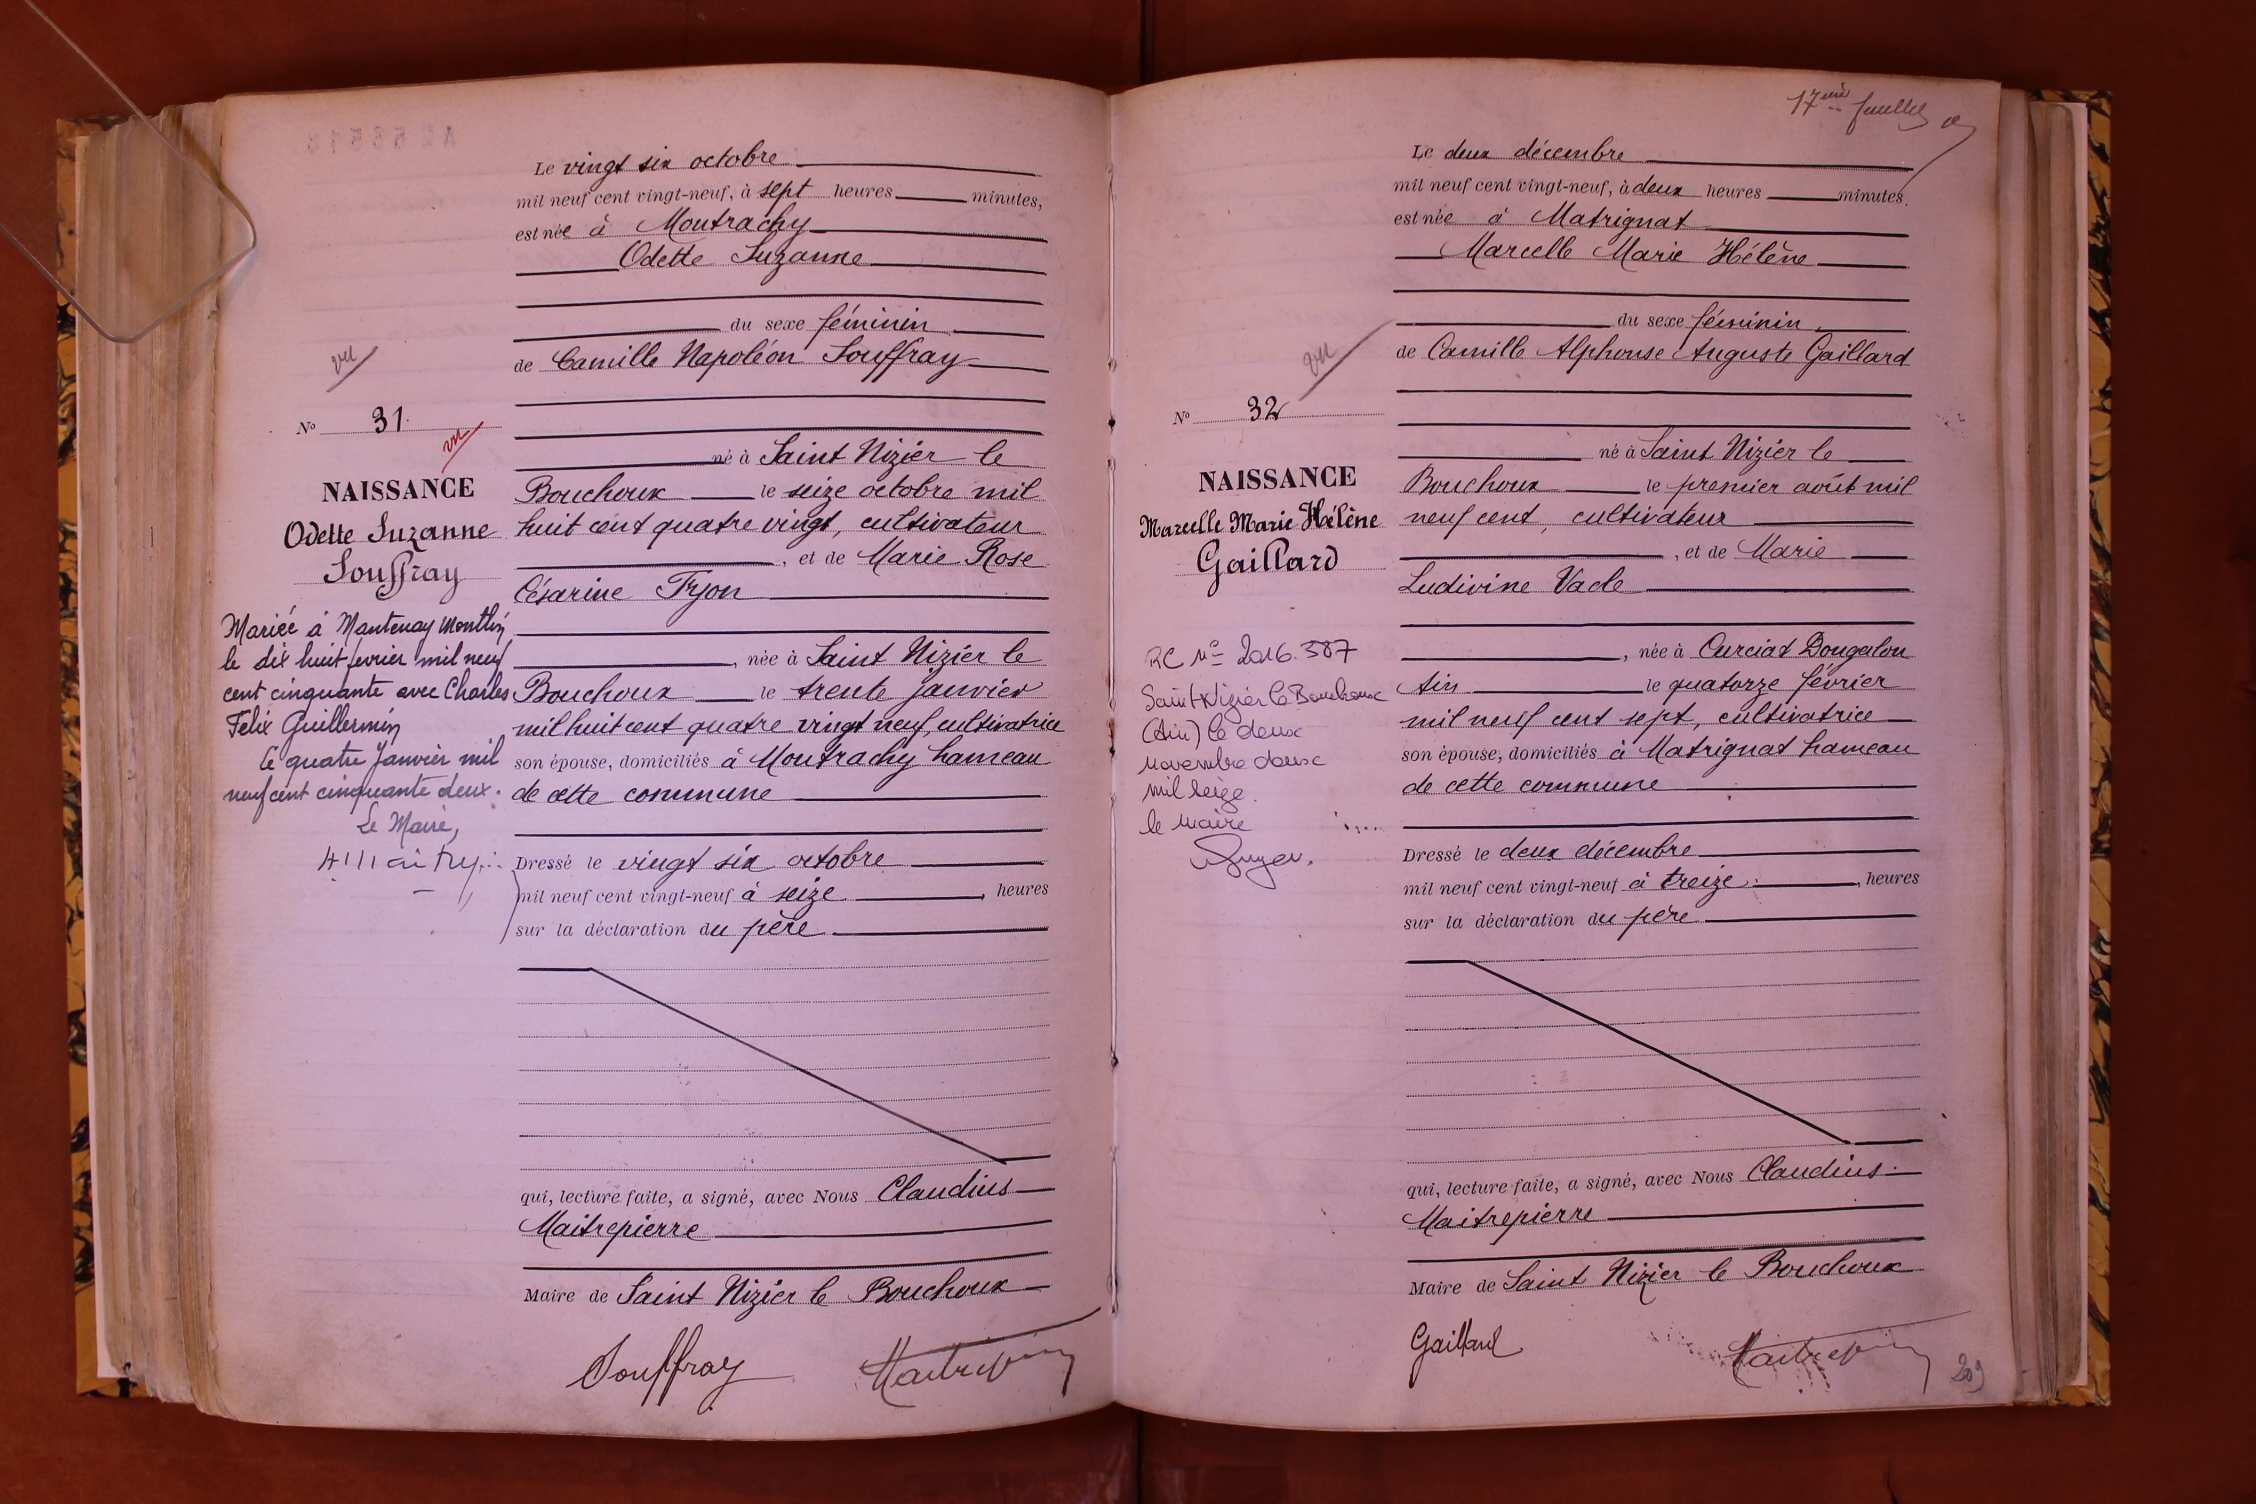 Le vingt six octobre
mil neuf cent vingt-neuf, à sept heures minutes,
est née à Montrachy
Odette Suzanne
du sexe féminin
de Camille Napoléon Souffray
vu
No 31
vu
NAISSANCE
Odette Suzanne
Souffray
né à Saint Nizier le
Bouchoux le seize octobre mil
huit cent quatre vingt, cultivateur
, et de Marie Rose
Césarine Tryon
, née à Saint Nizier le
Bouchoux le trente janvier
mil huit cent quatre vingt neuf, cultivatrice
son épouse, domiciliés à Montrachy hameau
de cette commune
Mariée à Mantenay Montlin
le dix huit fevrier mil neuf
cent cinquante avec Charles
Felix Guillermin
le quatre Janvier mil
neuf cent cinquante deux.
Le Maire,
Dressé le vingt six octobre
mil neuf cent vingt-neuf à seize , heures
sur la déclaration du père
qui, lecture faite, a signé, avec Nous Claudius
Maitrepierre
Maire de Saint Nizier le Bouchoux
Souffray Maitrepierre
17eme feuillet
Le deux décembre
mil neuf cent vingt-neuf, à deux heures minutes.
est née à Matrignat
Marcelle Marie Hélène
du sexe féminin
de Camille Alphonse Auguste Gaillard
vu
No 32
NAISSANCE
Marcelle Marie Hélène
Gaillard
né à Saint Nizier le
Bouchoux le premier août mil
neuf cent, cultivateur
, et de Marie
Ludivine Vacle
, née à Curciat Dongalon
Ain le quatorze février
mil neuf cent sept, cultivatrice
son épouse, domiciliés à Matrignat hameau
de cette commune
RC No 2016.587
Saint Nizier le Bouchoux
(Ain) le deux
novembre deux
mil seize.
le maire
Dressé le deux décembre
mil neuf cent vingt-neuf à treize , heures
sur la déclaration du père
qui, lecture faite, a signé, avec Nous Claudius
Maitrepierre
Maire de Saint Nizier le Bouchoux
Gaillard Maitrepierre
209